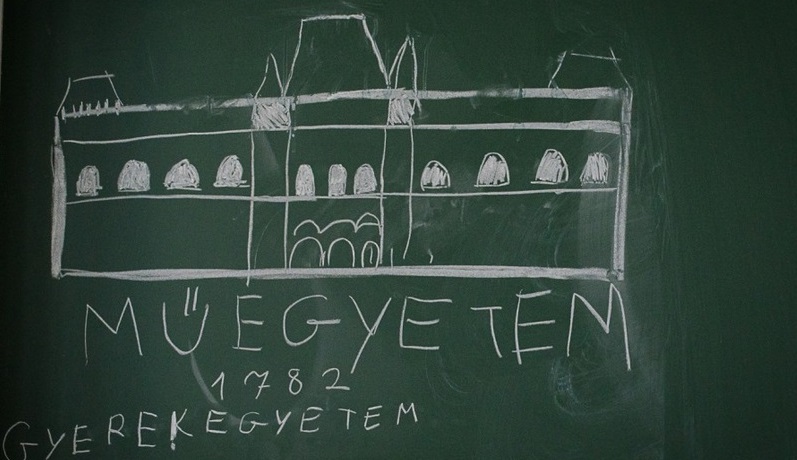 MŰEGYETEM
1782
GYEREKEGYETEM